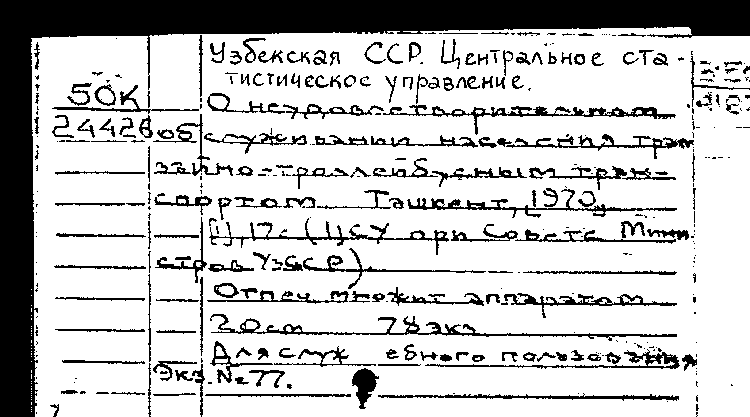 Узбекская ССР. Центральное ста-
тистическое управление.
50К
О неудовлетворительном
24426 обслуживании населения трам
вайно-троллейбусным тран-
спортом. Ташкент, [1970]
[1], 17с (ЦСУ при Совете Мини
стров УзССР).
Отпеч множит аппаратом
20см 78 экз
Для служ ебного пользования
Экз. № 77.